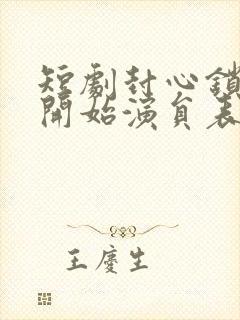 短劇封心鎖
開始演員表
王慶生